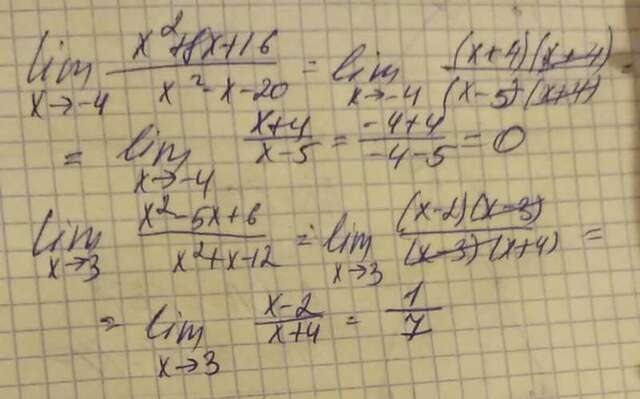 lim x→-4 (x²+8x+16)/(x²-x-20) = lim x→-4 ((x+4)(x+4))/((x-5)(x+4)) =
= lim x→-4 (x+4)/(x-5) = (-4+4)/(-4-5) = 0
lim x→3 (x²-5x+6)/(x²+x-12) = lim x→3 ((x-2)(x-3))/((x-3)(x+4)) =
= lim x→3 (x-2)/(x+4) = 1/7